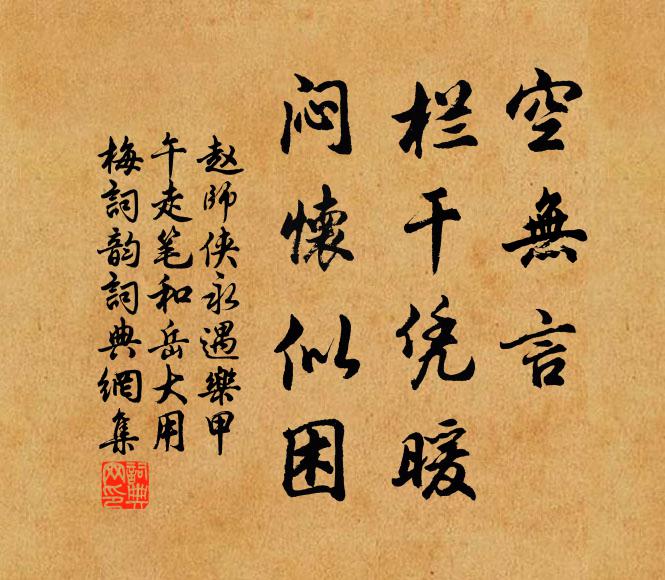 空無言
栏干凭暖
闷懷似困
赵师侠永遇樂甲
午走笔和岳大用
梅詞韵詞典網集
詞典
网印